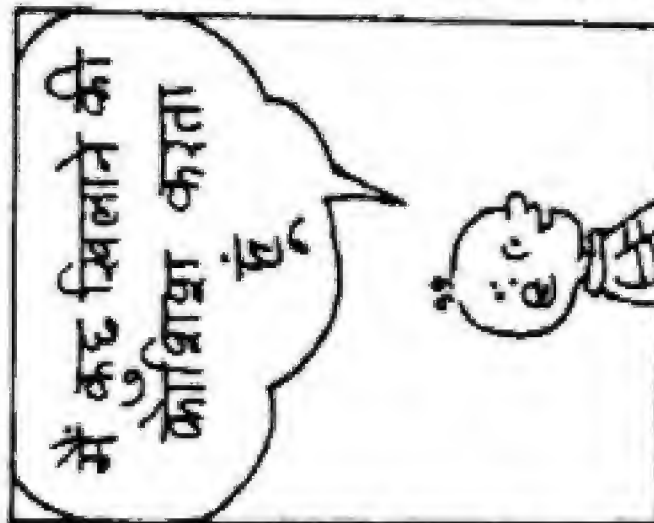 मैं कुछ खिलाने की
कोशिश करता
हूं